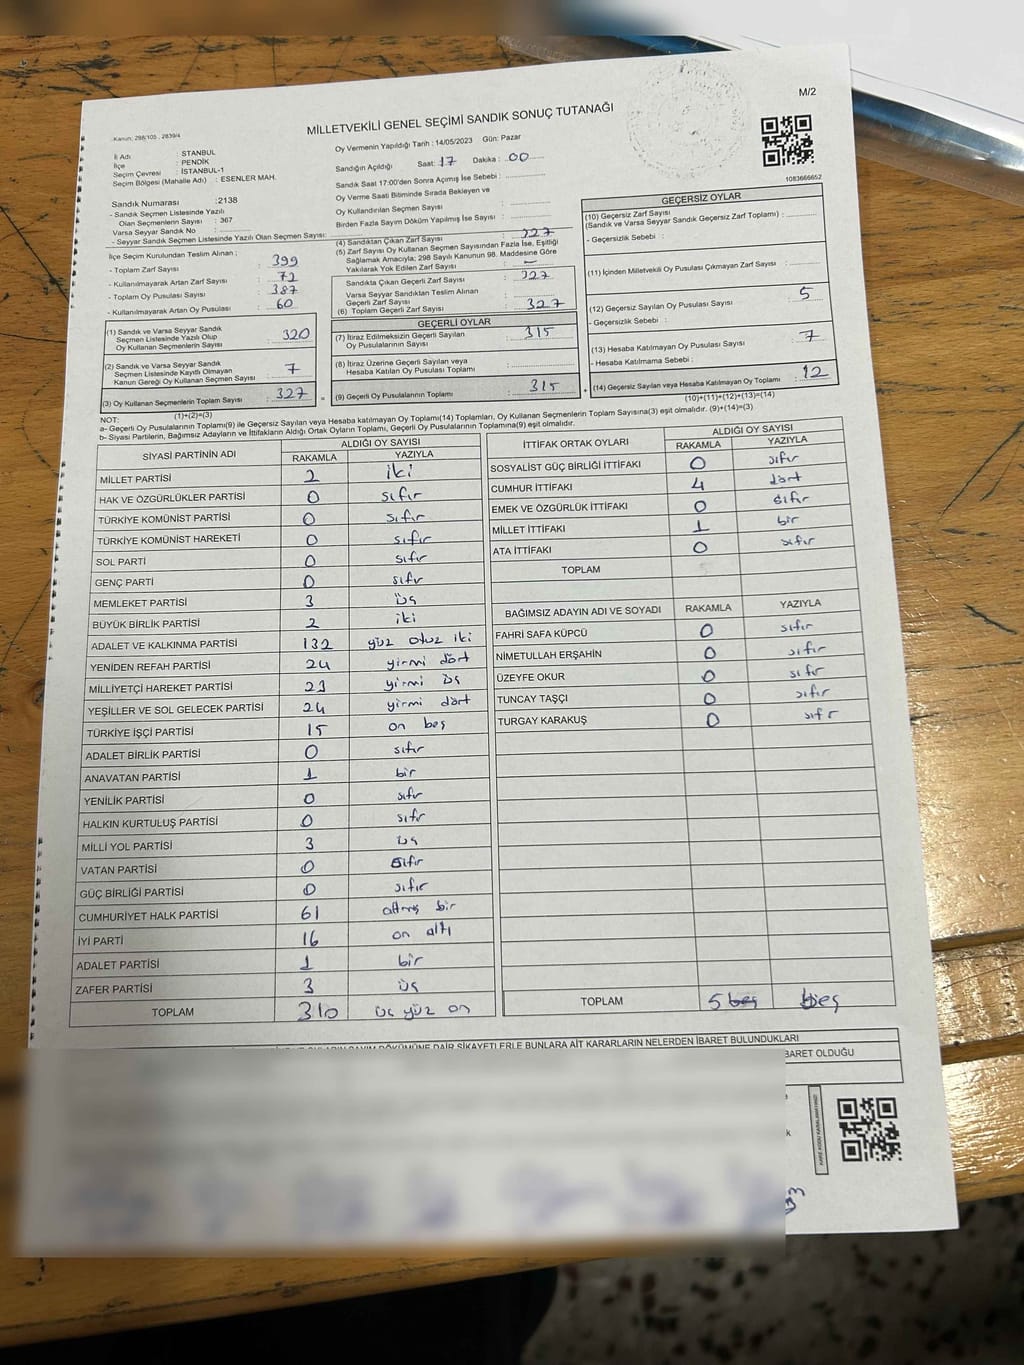 M/2
MİLLETVEKİLİ GENEL SEÇİMİ SANDIK SONUÇ TUTANAĞI
Kanun: 298/105 . 2839/4
Oy Vermenin Yapıldığı Tarih : 14/05/2023 Gün: Pazar
İl Adı : STANBUL
İlçe : PENDİK
Seçim Çevresi : İSTANBUL-1
Seçim Bölgesi (Mahalle Adı) : ESENLER MAH.
Sandığın Açıldığı Saat: 17 Dakika : 00
Sandık Saat 17:00'den Sonra Açımış İse Sebebi :
Oy Verme Saati Bitiminde Sırada Bekleyen ve
Oy Kullandırılan Seçmen Sayısı :
Birden Fazla Sayım Döküm Yapılmış İse Sayısı :
1083666652
Sandık Numarası :2138
- Sandık Seçmen Listesinde Yazılı
Olan Seçmenlerin Sayısı : 367
Varsa Seyyar Sandık No :
- Seyyar Sandık Seçmen Listesinde Yazılı Olan Seçmen Sayısı:
İlçe Seçim Kurulundan Teslim Alınan ;
- Toplam Zarf Sayısı : 399
- Kullanılmayarak Artan Zarf Sayısı : 72
- Toplam Oy Pusulası Sayısı : 387
- Kullanılmayarak Artan Oy Pusulası : 60
(1) Sandık ve Varsa Seyyar Sandık
Seçmen Listesinde Yazılı Olup
Oy Kullanan Seçmenlerin Sayısı : 320
(2) Sandık ve Varsa Seyyar Sandık
Seçmen Listesinde Kayıtlı Olmayan
Kanun Gereği Oy Kullanan Seçmen Sayısı : 7
(3) Oy Kullanan Seçmenlerin Toplam Sayısı : 327
(1)+(2)=(3)
(4) Sandıktan Çıkan Zarf Sayısı : 327
(5) Zarf Sayısı Oy Kullanan Seçmen Sayısından Fazla İse, Eşitliği
Sağlamak Amacıyla; 298 Sayılı Kanunun 98. Maddesine Göre
Yakılarak Yok Edilen Zarf Sayısı : –
Sandıkta Çıkan Geçerli Zarf Sayısı : 327
Varsa Seyyar Sandıktan Teslim Alınan
Geçerli Zarf Sayısı :
(6) Toplam Geçerli Zarf Sayısı : 327
GEÇERLİ OYLAR
(7) İtiraz Edilmeksizin Geçerli Sayılan
Oy Pusulalarının Sayısı : 315
(8) İtiraz Üzerine Geçerli Sayılan veya
Hesaba Katılan Oy Pusulası Toplamı :
(9) Geçerli Oy Pusulalarının Toplamı : 315
GEÇERSİZ OYLAR
(10) Geçersiz Zarf Sayısı
(Sandık ve Varsa Seyyar Sandık Geçersiz Zarf Toplamı) :
- Geçersizlik Sebebi :
(11) İçinden Milletvekili Oy Pusulası Çıkmayan Zarf Sayısı :
(12) Geçersiz Sayılan Oy Pusulası Sayısı : 5
- Geçersizlik Sebebi :
(13) Hesaba Katılmayan Oy Pusulası Sayısı : 7
- Hesaba Katılmama Sebebi :
(14) Geçersiz Sayılan veya Hesaba Katılmayan Oy Toplamı : 12
(10)+(11)+(12)+(13)=(14)
NOT:
a- Geçerli Oy Pusulalarının Toplamı(9) ile Geçersiz Sayılan veya Hesaba katılmayan Oy Toplamı(14) Toplamları, Oy Kullanan Seçmenlerin Toplam Sayısına(3) eşit olmalıdır. (9)+(14)=(3)
b- Siyasi Partilerin, Bağımsız Adayların ve İttifakların Aldığı Ortak Oyların Toplamı, Geçerli Oy Pusulalarının Toplamına(9) eşit olmalıdır.
SİYASİ PARTİNİN ADI ALDIĞI OY SAYISI
RAKAMLA YAZIYLA
MİLLET PARTİSİ 2 iki
HAK VE ÖZGÜRLÜKLER PARTİSİ 0 sıfır
TÜRKİYE KOMÜNİST PARTİSİ 0 sıfır
TÜRKİYE KOMÜNİST HAREKETİ 0 sıfır
SOL PARTİ 0 sıfır
GENÇ PARTİ 0 sıfır
MEMLEKET PARTİSİ 3 üç
BÜYÜK BİRLİK PARTİSİ 2 iki
ADALET VE KALKINMA PARTİSİ 132 yüz otuz iki
YENİDEN REFAH PARTİSİ 24 yirmi dört
MİLLİYETÇİ HAREKET PARTİSİ 23 yirmi üç
YEŞİLLER VE SOL GELECEK PARTİSİ 24 yirmi dört
TÜRKİYE İŞÇİ PARTİSİ 15 on beş
ADALET BİRLİK PARTİSİ 0 sıfır
ANAVATAN PARTİSİ 1 bir
YENİLİK PARTİSİ 0 sıfır
HALKIN KURTULUŞ PARTİSİ 0 sıfır
MİLLİ YOL PARTİSİ 3 üç
VATAN PARTİSİ 0 sıfır
GÜÇ BİRLİĞİ PARTİSİ 0 sıfır
CUMHURİYET HALK PARTİSİ 61 altmış bir
İYİ PARTİ 16 on altı
ADALET PARTİSİ 1 bir
ZAFER PARTİSİ 3 üç
TOPLAM 310 üç yüz on
İTTİFAK ORTAK OYLARI ALDIĞI OY SAYISI
RAKAMLA YAZIYLA
SOSYALİST GÜÇ BİRLİĞİ İTTİFAKI 0 sıfır
CUMHUR İTTİFAKI 4 dört
EMEK VE ÖZGÜRLÜK İTTİFAKI 0 sıfır
MİLLET İTTİFAKI 1 bir
ATA İTTİFAKI 0 sıfır
TOPLAM
BAĞIMSIZ ADAYIN ADI VE SOYADI RAKAMLA YAZIYLA
FAHRİ SAFA KÜPCÜ 0 sıfır
NİMETULLAH ERŞAHİN 0 sıfır
ÜZEYFE OKUR 0 sıfır
TUNCAY TAŞÇI 0 sıfır
TURGAY KARAKUŞ 0 sıfır
TOPLAM 5 beş beş
SAYIM DÖKÜMÜNE DAİR ŞİKAYETLERLE BUNLARA AİT KARARLARIN NELERDEN İBARET BULUNDUKLARI
BARET OLDUĞU